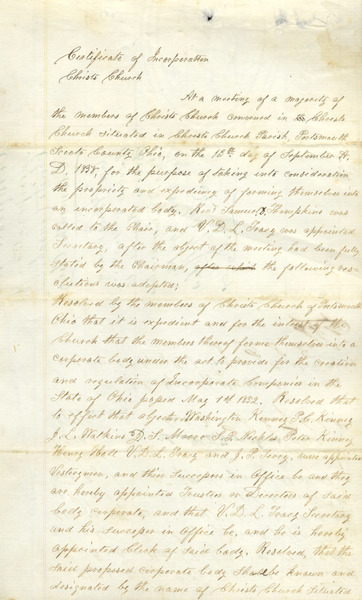 Certificate of Incorporation
Christ Church
At a meeting of a majority of
the members of Christ Church convened in Christ
Church situated in Christ Church Parish, Portsmouth
Scioto County Ohio, on the 15th day of September A.
D. 1858, for the purpose of taking into consideration
the propriety and expediency of forming themselves into
an incorporated body. Revd Samuel Thompkins was
called to the Chair, and V. D. L. Tracy was appointed
Secretary, after the object of the meeting had been fully
stated by the Chairman, the following res-
olutions was adopted;
Resolved by the members of Christ Church of Portsmouth
Ohio that it is expedient and for the interest of the
Church that the members thereof forme themselves into a
corporate body under the act to provide for the creation
and regulation of Incorporate Companies in the
State of Ohio passed May 1st 1852. Resolved that
to effect that object Washington Kinney P. C. Kinney
J. L. Watkins D. S. Moore Peter Kinney
Henry Hall V. D. L. Tracy and J. P. Terry, were appointed
Vestrymen, and thier successors in Office be and they
are hereby appointed Trustees or Directors of said
body corporate, and that V. D. L. Tracy Secretary
and his successor in Office be, and he is hereby
appointed Clerk of said body. Resolved, that the
said proposed corporate body shall be known and
designated by the name of Christ Church situated